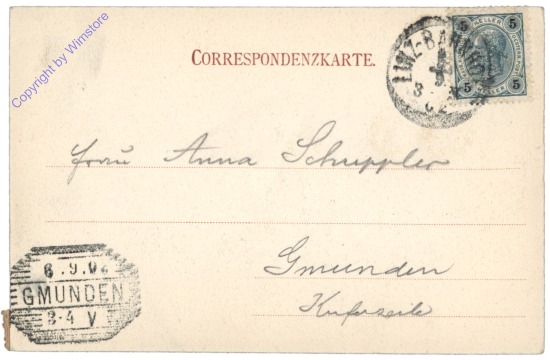 Copyright by Wimstore
CORRESPONDENZKARTE.
LINZ-BAHNHOF
5 HELLER 5
5 5
Frau Anna Schuppler
Gmunden
6.9.02
GMUNDEN
3-4 V